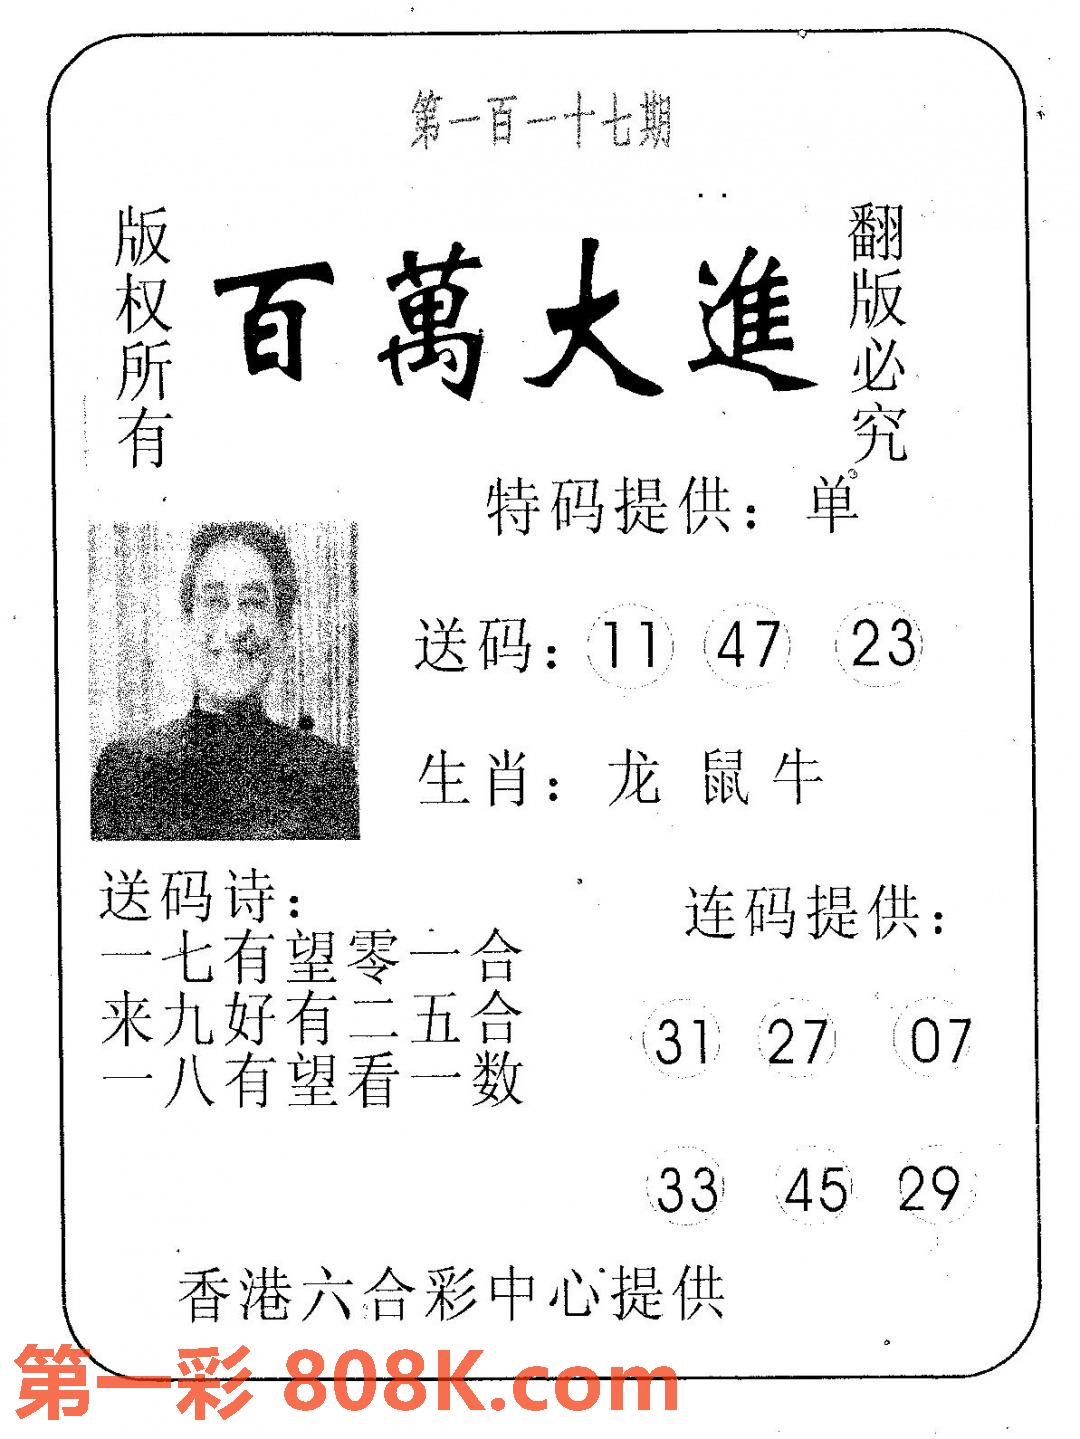 第一百一十七期
版权所有
百萬大進
翻版必究
特码提供：单
送码：11 47 23
生肖：龙 鼠 牛
送码诗：
一七有望零一合
来九好有二五合
一八有望看一数
连码提供：
31 27 07
33 45 29
香港六合彩中心提供
第一彩 808K.com